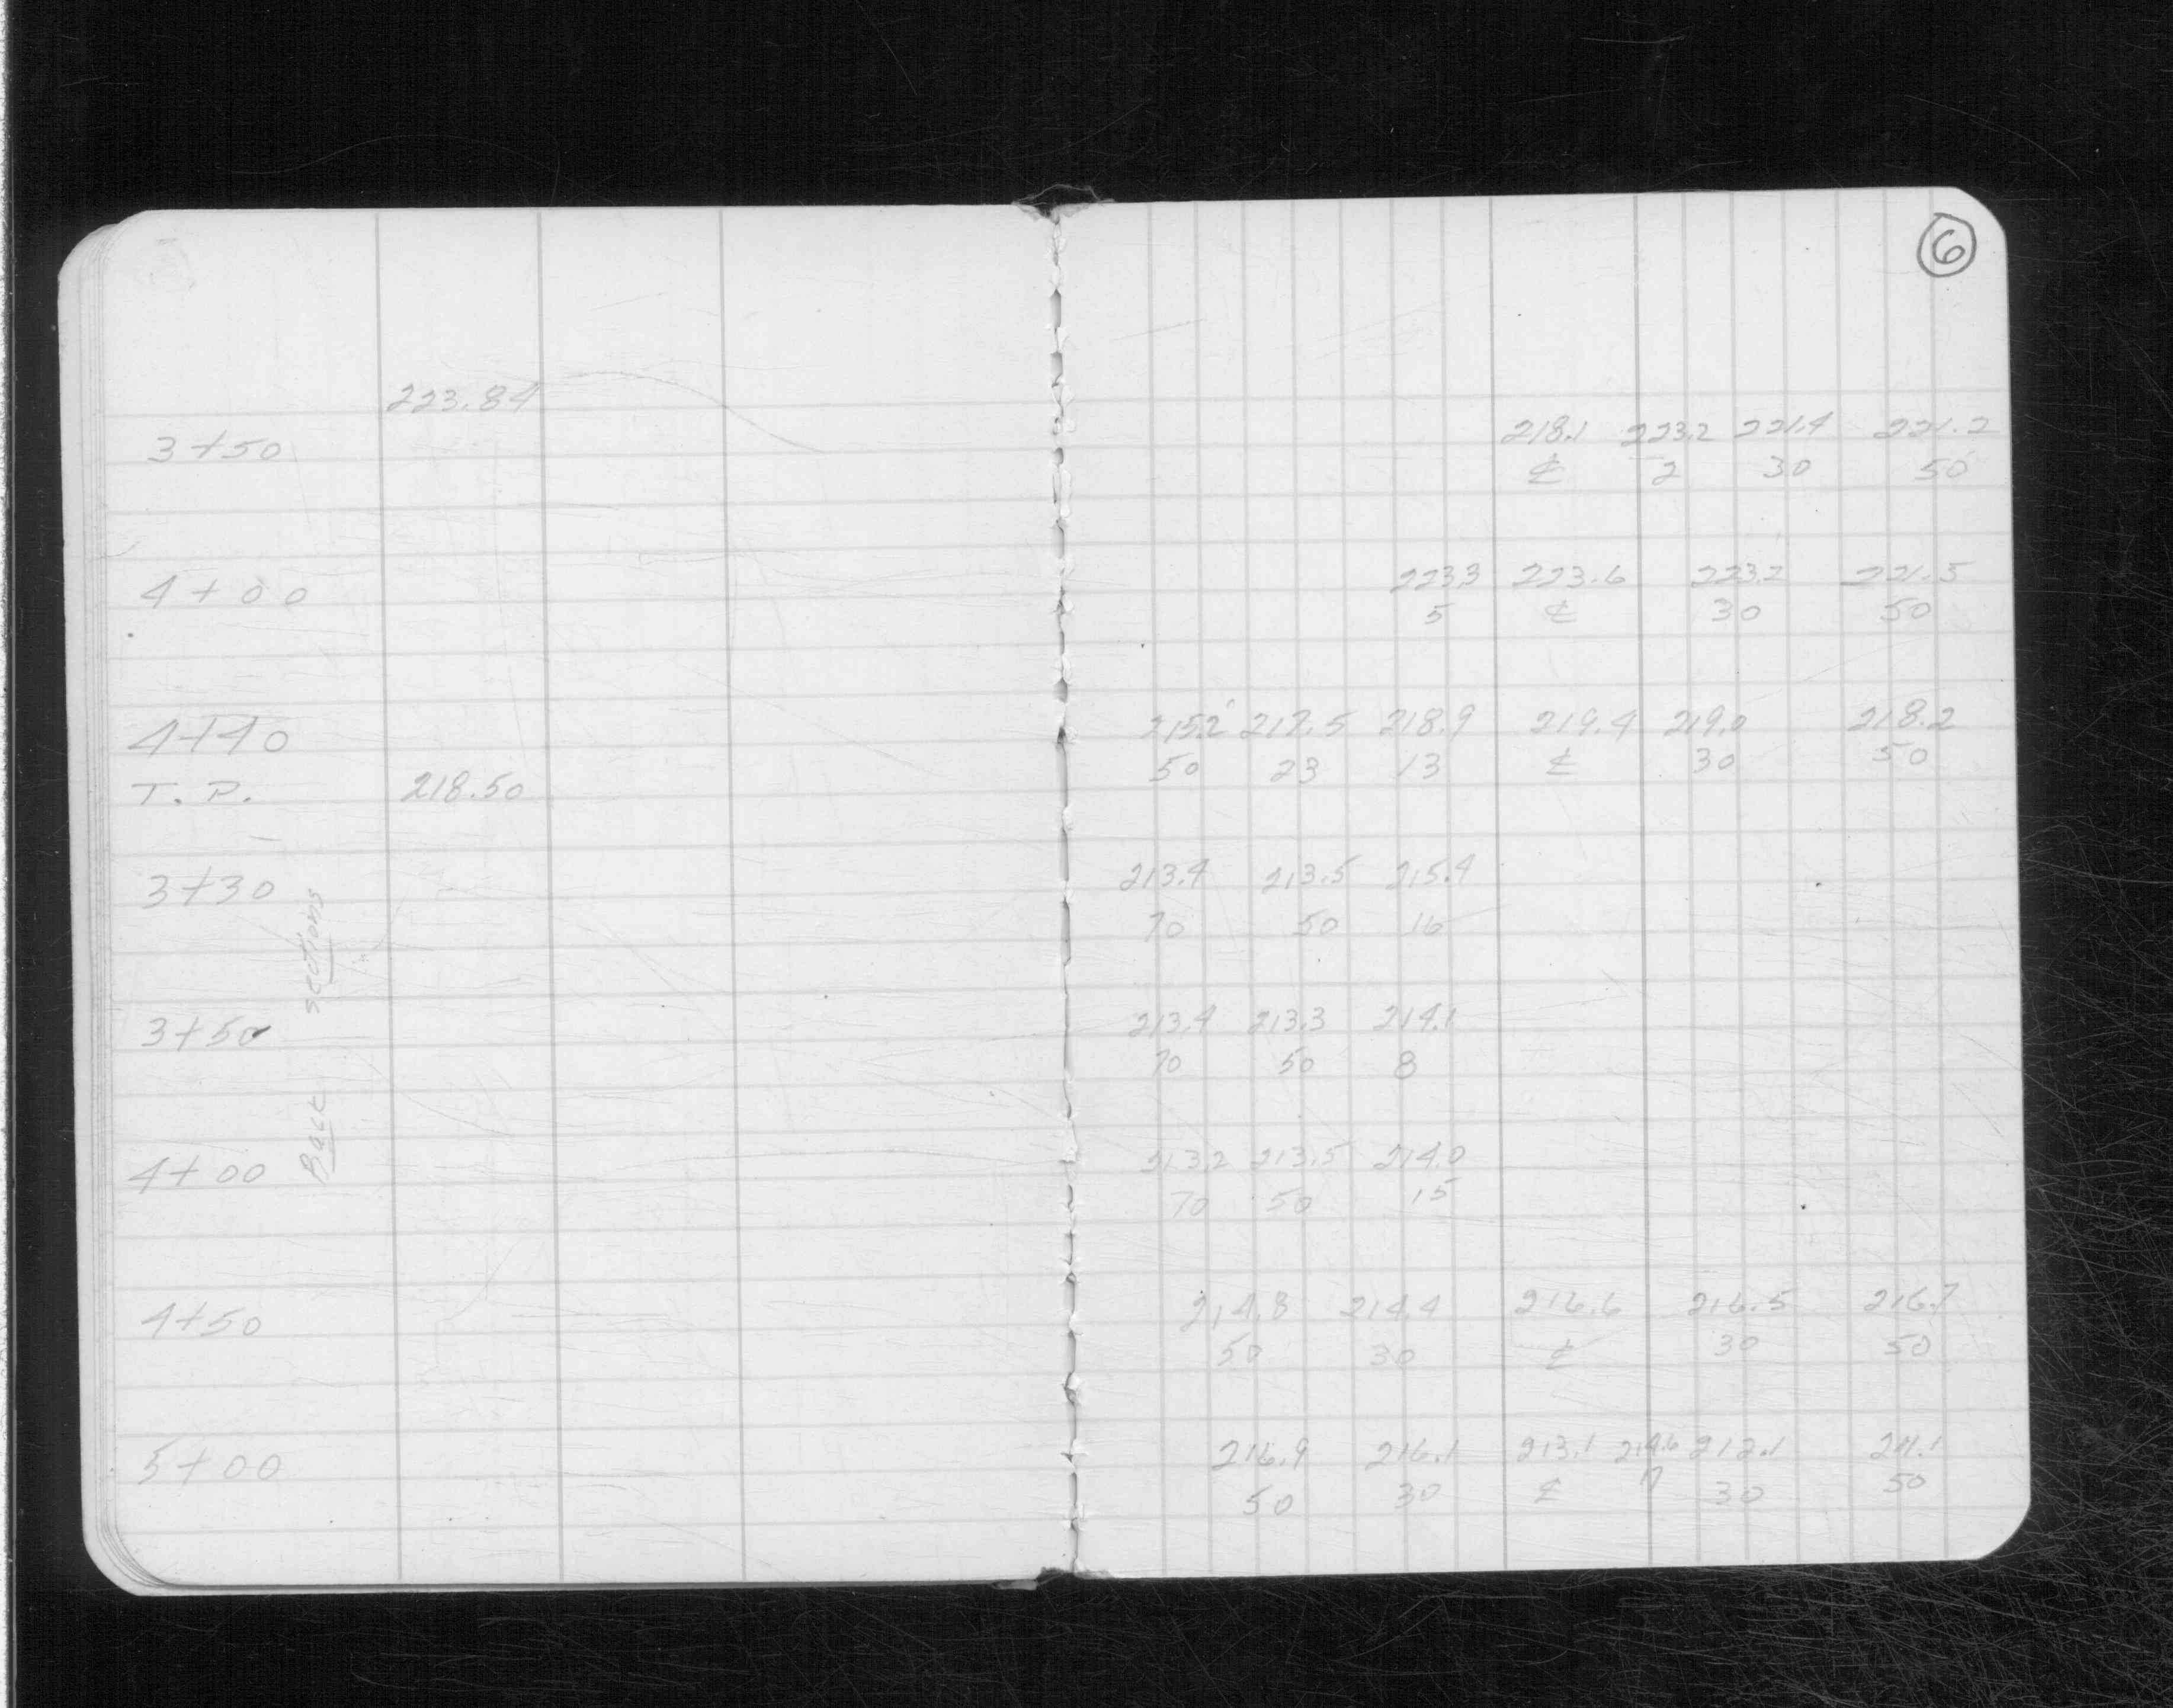 6
223.84
3+50 218.1 223.2 221.4 221.2
℄ 2 30 50
4+00 223.3 223.6 223.2 221.5
5 ℄ 30 50
4+40 215.2 217.5 218.9 219.4 219.0 218.2
50 23 13 ℄ 30 50
T.P. 218.50
3+30 213.4 213.5 215.4
70 50 16
Back sections
3+50 213.4 213.3 214.1
70 50 8
4+00 213.2 213.5 214.0
70 50 15
4+50 214.8 214.4 216.6 216.5 216.7
50 30 ℄ 30 50
5+00 216.9 216.1 213.1 212.1 211.1
50 30 ℄ 17 30 50